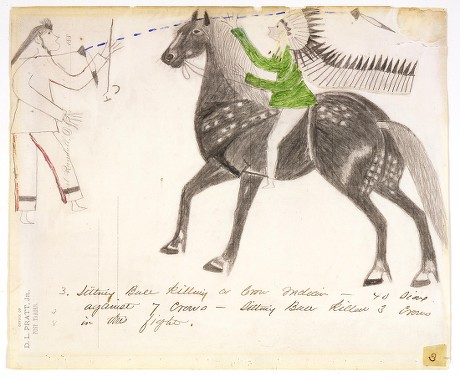 3. Sitting Bull Killing a Crow Indian — 40 Sioux
against 7 Crows — Sitting Bull Killed 3 Crows
in the fight.
D. L. PRATT, Jr.,
3